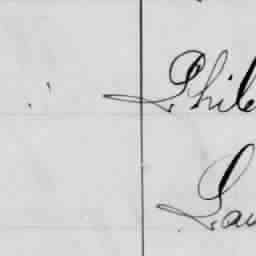 Phile
Lau